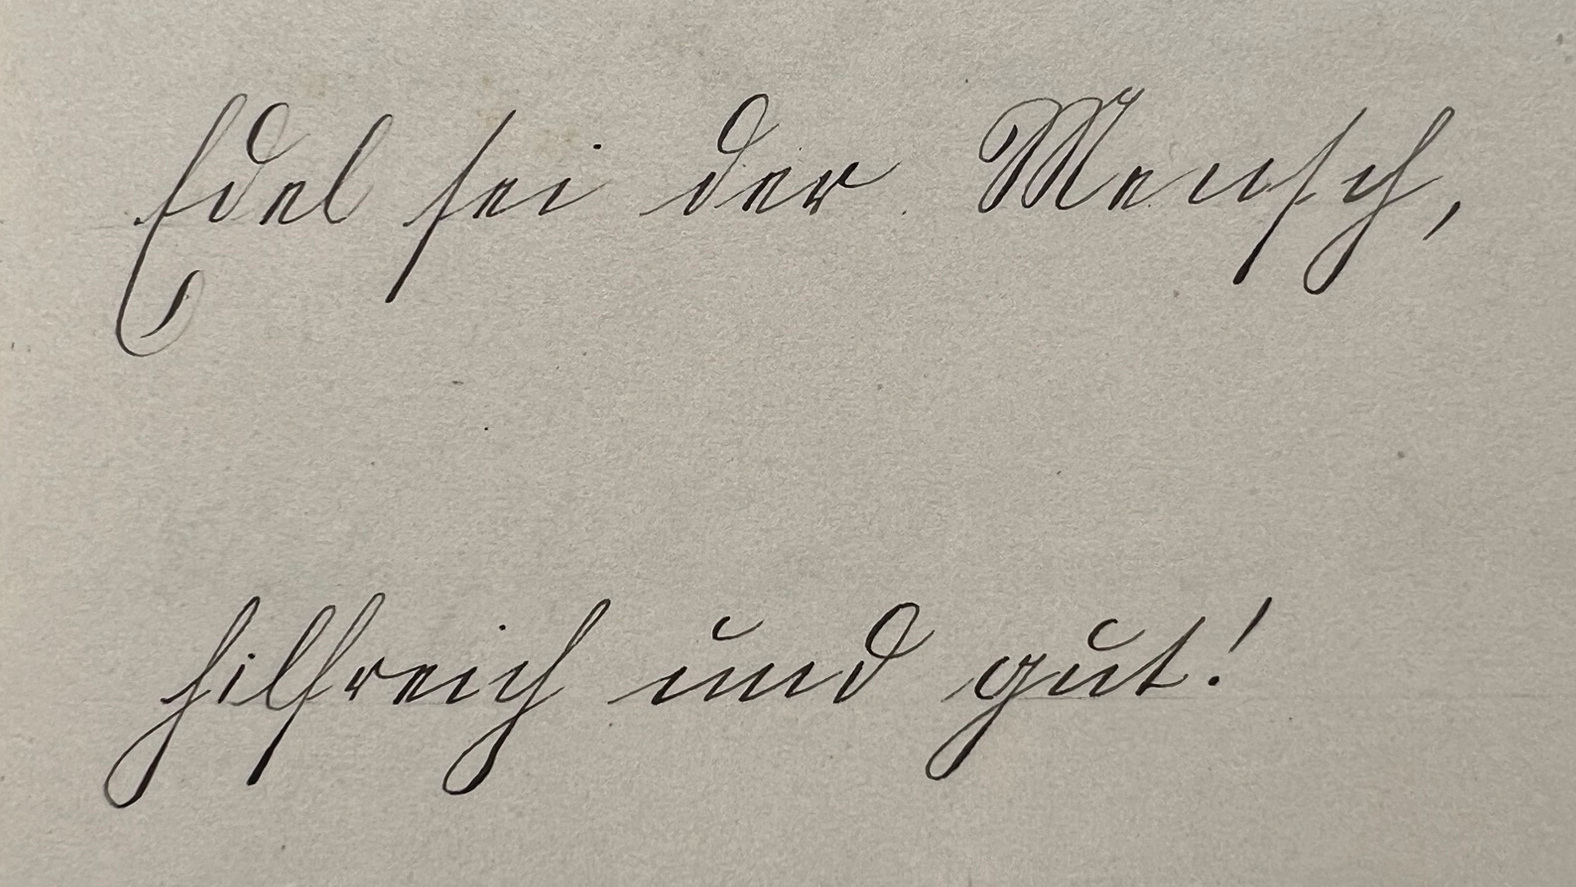 Edel sei der Mensch,
hilfreich und gut!